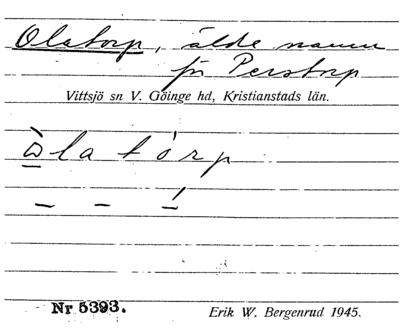 Olatorp, äldre namn
för Perstorp
Vittsjö sn V. Göinge hd, Kristianstads län.
òlatórp
Nr 5393.
Erik W. Bergenrud 1945.